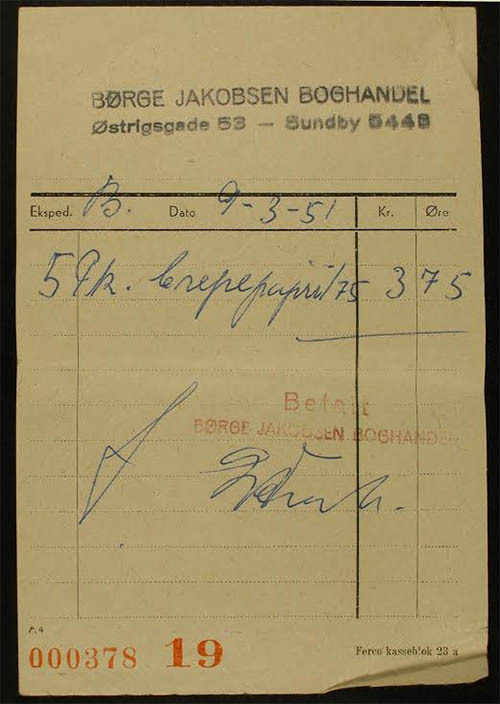 BØRGE JAKOBSEN BOGHANDEL
Østrigsgade 53 — Sundby 5449
Eksped. B. Dato 9-3-51 Kr. Øre
5 Pk. Crepepapir /75 3 75
Betalt
BØRGE JAKOBSEN BOGHANDEL
000378 19
Ferco kasseblok 23 a